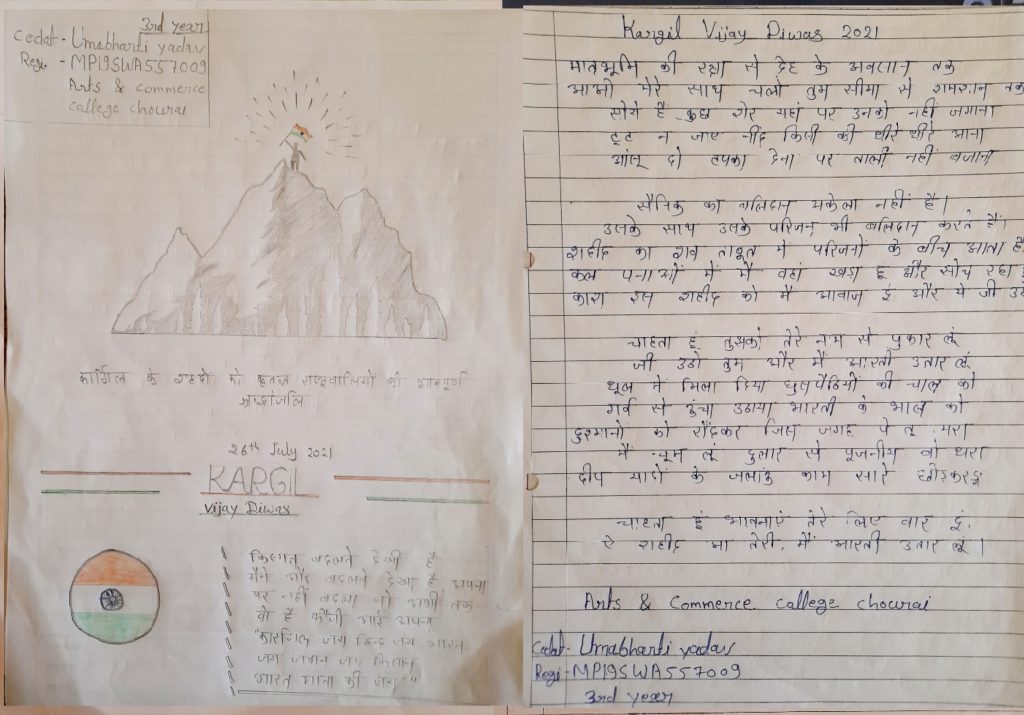 3rd year
Cadat - Umabharti yadav
Regi. - MP19SWA557009
Arts & commerce
college chourai
कार्गिल के शहीदो को कृतज्ञ राष्ट्रवासियों की भावपूर्ण
श्रद्धांजलि
26th July 2021
KARGIL
Vijay Diwas
किस्मत बदलते देखी है
मैने और बदलते देखा है अपना
पर नहीं बदला जो अभी तक
वो है फौजी भाई अपना
"कारगिल जय हिन्द जय भारत
जय जवान जय किसान
भारत माता की जय"
Kargil Vijay Diwas 2021
मातृभूमि की रक्षा से देह के अवसान तक
आओ मेरे साथ चलो तुम सीमा से शमशान तक
सोये है कुछ शेर यहां पर उनको नहीं जगाना
टूट न जाए नींद किसी की धीरे धीरे आना
आंसू दो टपका देना पर ताली नहीं बजाना
सैनिक का बलिदान अकेला नहीं है।
उसके साथ उसके परिजन भी बलिदान करते हैं।
शहीद का शव ताबूत मे परिजनो के बीच आता है
कल्पनाओं में मैं वहां खड़ा हूं और सोच रहा हूं
काश इस शहीद को मै आवाज दूं और ये जी उठे
चाहता हूं तुझको तेरे नाम से पुकार लूं
जी उठो तुम और मैं आरती उतार लूं
धूल मे मिला दिया घुसपैठियो की चाल को
गर्व से ऊंचा उठाया भारती के भाल को
दुश्मानो को रौंदकर जिस जगह पे तू मरा
मैं चूम लूं दुलार से पूजनीय वो धरा
दीप यादों के जलाऊं काम सारे छोड़कर
चाहता हूं भावनाएं तेरे लिए वार दूं,
ऐ शहीद आ तेरी मैं आरती उतार लूं।
Arts & Commerce college chourai
Cadt - Umabharti yadav
Regi - MP19SWA557009
3rd year